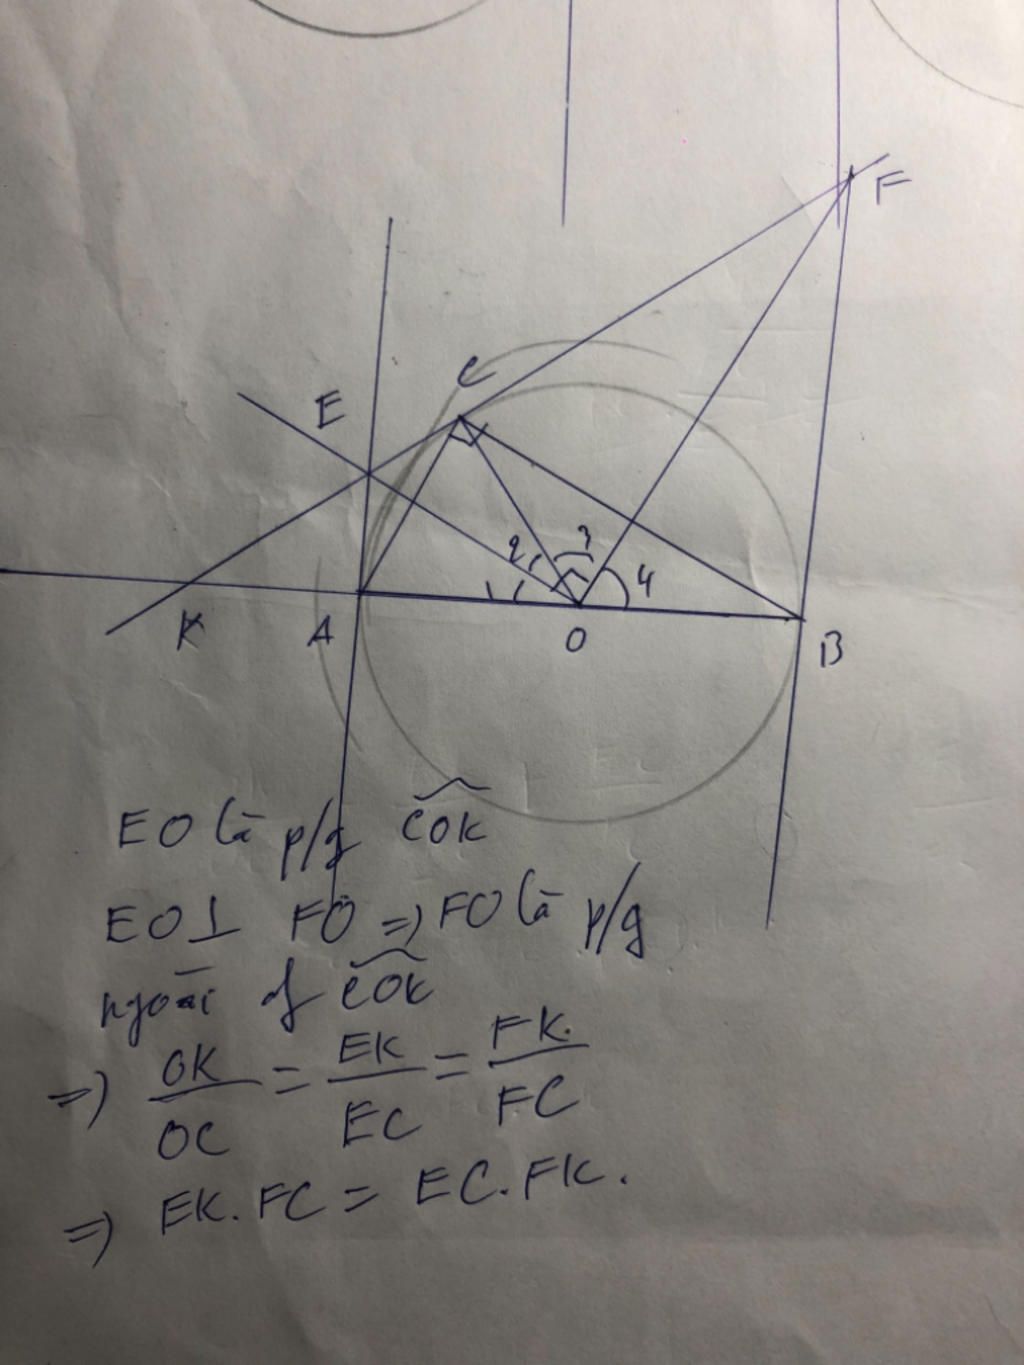 F
C
E
2
3
4
1
K
A
O
B
EO là p/g COK
EO ⊥ FO => FO là p/g
ngoài of COK
=> OK/OC = EK/EC = FK/FC
=> EK.FC = EC.FK.